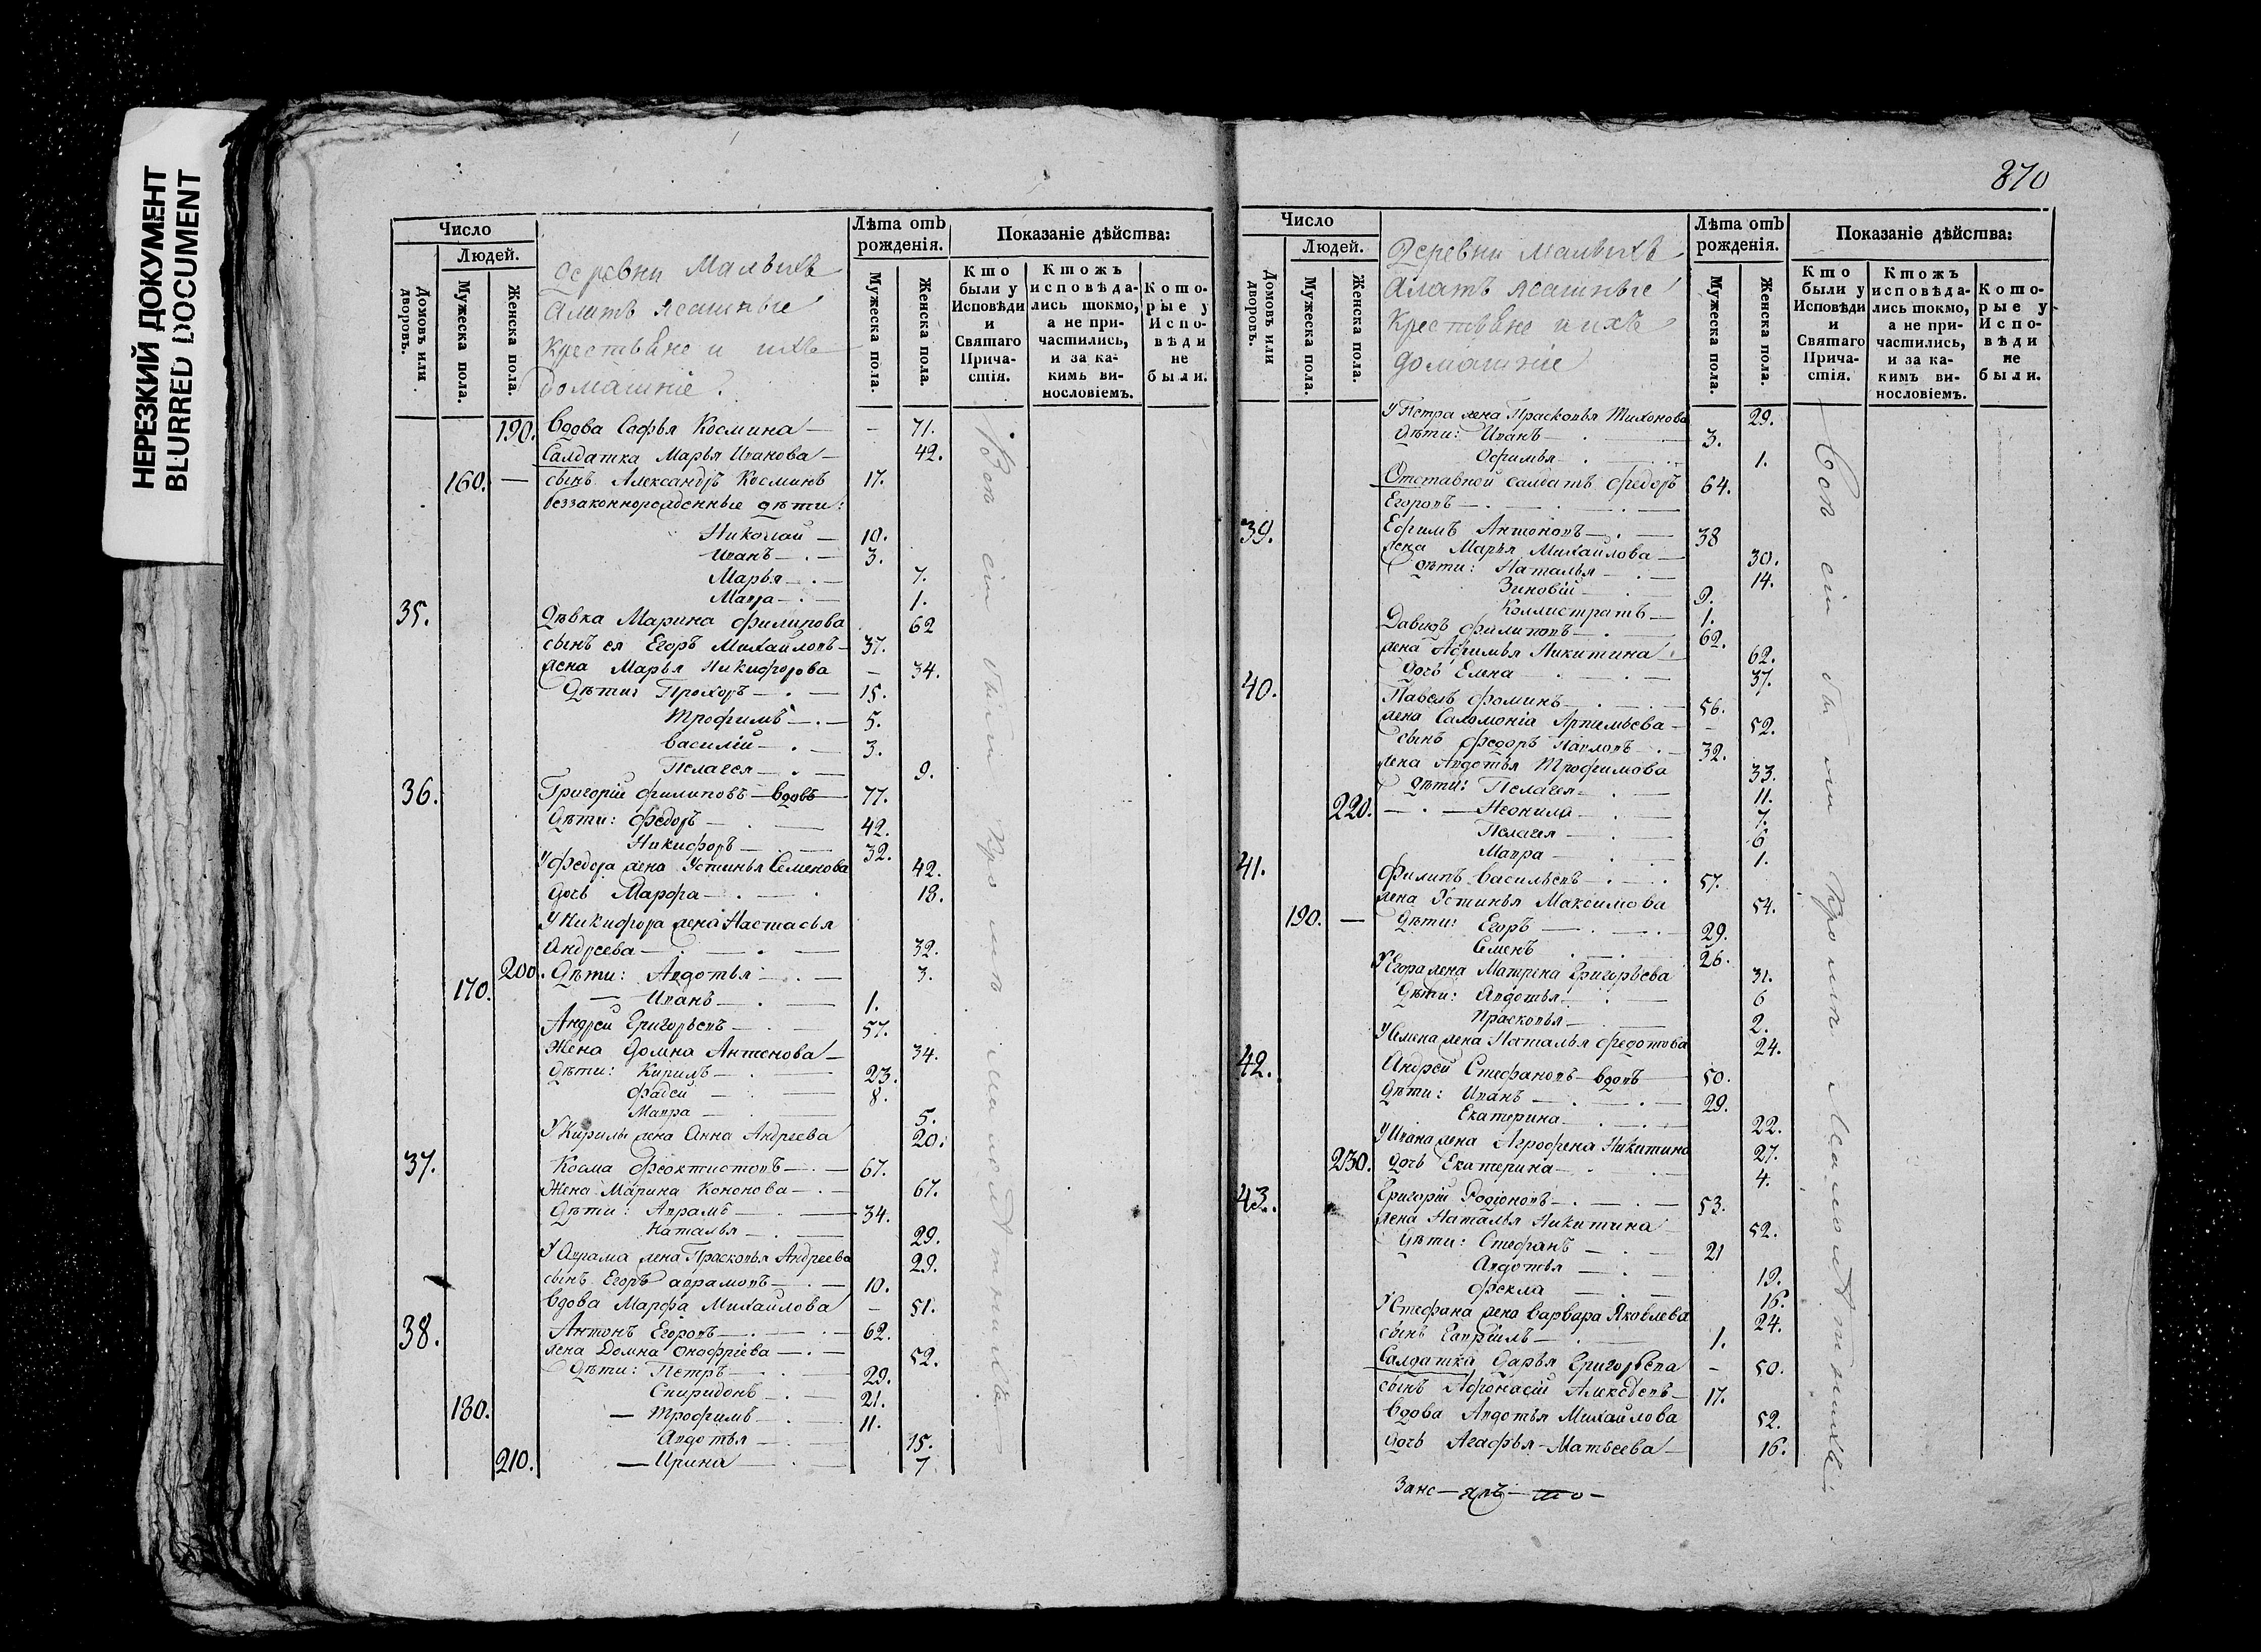 НЕРЕЗКИЙ ДОКУМЕНТ
BLURRED DOCUMENT
Число
Людей.
Домовъ или дворовъ.
Мужеска пола.
Женска пола.
Деревни Малыхъ
Алатъ ясашные
крестьяне и ихъ
домашніе
Лѣта отъ рожденія.
Мужеска пола.
Женска пола.
Показаніе дѣйства:
Кто были у Исповѣди и Святаго Причастія.
Ктожъ исповѣдались токмо, а не причастились, и за какимъ винословіемъ.
Которые у Исповѣди не были.
190. Вдова Софья Космина — 71.
Салдатка Марья Иванова — 42.
160. — сынъ Александръ Косминъ 17.
беззаконнорожденные дѣти:
Николай — 10.
Иванъ — 3.
Марья — 7.
Мавра — 1.
35. Дѣвка Марина Филипова 62
сынъ ея Егоръ Михайловъ — 37.
жена Марья Никифорова — 34.
Дѣти: Прохоръ — 15.
Трофимъ — 5.
Василій — 3.
Пелагея — 9.
36. Григорій Филиповъ — вдовъ 77.
Дѣти: Федоръ — 42.
Никифоръ — 32.
У Федора жена Устинья Семенова 42.
дочь Марфа — 18.
У Никифора жена Настасья
Андреева — 32.
200. Дѣти: Авдотья — 3.
170. — Иванъ — 1.
Андрей Григорьевъ — 57.
Жена Домна Антонова — 34.
Дѣти: Кирилъ — 23.
Фадей — 8.
Мавра — 5.
У Кирилы жена Анна Андреева 20.
37. Козма Феоктистовъ — 67.
Жена Марина Кононова — 67.
Дѣти: Аврамъ — 34.
Наталья — 29.
У Аврама жена Прасковья Андреева 29.
сынъ Егоръ Аврамовъ — 10.
вдова Марфа Михайлова — 51.
38. Антонъ Егоровъ — 62.
жена Домна Онофріева — 52.
Дѣти: Петръ — 29.
Спиридонъ — 21.
180. — Трофимъ — 11.
Авдотья — 15.
210. — Ирина — 7
Вси сіи были
870
Число
Людей.
Домовъ или дворовъ.
Мужеска пола.
Женска пола.
Деревни Малыхъ
Алатъ ясашные
крестьяне и ихъ
домашніе
Лѣта отъ рожденія.
Мужеска пола.
Женска пола.
Показаніе дѣйства:
Кто были у Исповѣди и Святаго Причастія.
Ктожъ исповѣдались токмо, а не причастились, и за какимъ винословіемъ.
Которые у Исповѣди не были.
У Петра жена Прасковья Тихонова 29.
Дѣти: Иванъ — 3.
Офимья — 1.
Отставной салдатъ Федоръ 64.
Егоровъ —
39. Ефимъ Антоновъ — 38
жена Марья Михайлова — 30.
Дѣти: Наталья — 14.
Зиновій — 9.
Коллистратъ — 1.
Давидъ Филиповъ — 62.
жена Афимья Никитина 62.
Дочь Елена — 37.
40. Павелъ Фоминъ — 56.
жена Саломонія Артемьева — 52.
сынъ Федоръ Павловъ — 32.
жена Авдотья Трофимова 33.
Дѣти: Пелагея — 11.
220. — Неонила — 7.
Пелагея — 6
Мавра — 1.
41. Филипъ Васильевъ — 57.
жена Устинья Максимова 54.
190. — Дѣти: Егоръ — 29.
Семенъ 26.
У Егора жена Матрена Григорьева 31.
Дѣти: Авдотья — 6
Прасковья — 2.
У Семена жена Наталья Федотова 24.
42. Андрей Стефановъ — вдовъ 50.
Дѣти: Иванъ — 29.
Екатерина — 22.
У Ивана жена Агрофена Никитина 27.
230. дочь Екатерина — 4.
43. Григорій Родіоновъ — 53.
жена Наталья Никитина 52.
Дѣти: Стефанъ — 21
Авдотья — 19.
Фекла — 16.
У Стефана жена Варвара Яковлева 24.
сынъ Гавріилъ — 1.
Салдатка Дарья Григорьева — 50.
сынъ Афонасій Алексѣевъ — 17.
вдова Авдотья Михайлова 52.
дочь Агафья Матвеева — 16.
Вси сіи были